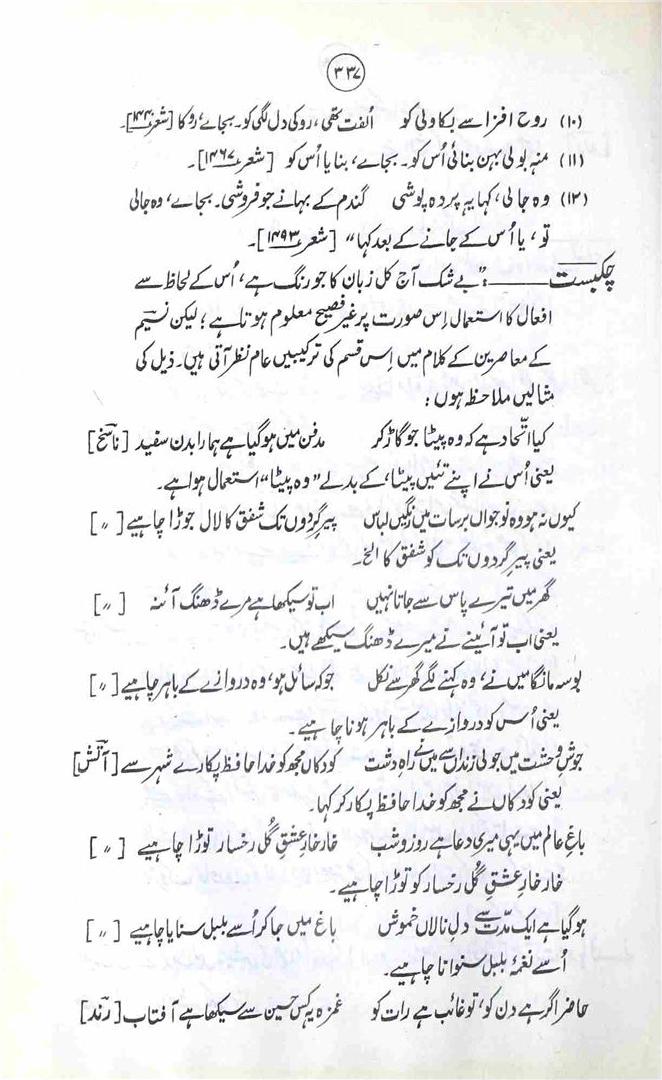 ۳۳۷
(۱۰) روح افزا سے بکاولی کو الفت تھی، روکی دل لگی کو۔ بجائے، روکا [شعر ۱۴۴۰]۔
(۱۱) منہ بولی بہن بنائی اُس کو۔ بجاے، بنایا اُس کو [شعر ۱۴۶۷]۔
(۱۲) وہ جالی، کہا یہ پردہ پوشی گندم کے بہانے جو فروشی۔ بجاے، وہ جالی
تو، یا اُس کے جانے کے بعد کہا" [شعر ۱۴۹۳]۔
چکبست ــــــ: "بے شک آج کل زبان کا جو رنگ ہے، اُس کے لحاظ سے
افعال کا استعمال اِس صورت پر غیر فصیح معلوم ہوتا ہے؛ لیکن نسیم
کے معاصرین کے کلام میں اِس قسم کی ترکیبیں عام نظر آتی ہیں۔ ذیل کی
مثالیں ملاحظہ ہوں:
کیا اتّحاد ہے کہ وہ پیٹا جو گاڑ کر مدفن میں ہو گیا ہے ہمارا بدن سفید [ناسخ]
یعنی اُس نے اپنے تئیں پیٹا، کے بدلے "وہ پیٹا" استعمال ہوا ہے۔
کیوں نہ ہو وہ نوجواں برسات میں رنگیں لباس پیرِ گردوں تک شفق کا لال جوڑا چاہیے [〃]
یعنی پیرِ گردوں تک کو شفق کا الخ۔
گھر میں تیرے پاس سے جاتا نہیں اب تو سیکھا ہے مرے ڈھنگ آئنہ [〃]
یعنی اب تو آئینے نے میرے ڈھنگ سیکھے ہیں۔
بوسہ مانگا میں نے، وہ کہنے لگے گھر سے نکل جو کہ سائل ہو، وہ دروازے کے باہر چاہیے [〃]
یعنی اُس کو دروازے کے باہر ہونا چاہیے۔
جوشِ وحشت میں جو لی زنداں سے میں نے راہِ دشت کودکاں مجھ کو خدا حافظ پکارے شہر سے [آتش]
یعنی کودکاں نے مجھ کو خدا حافظ پکار کر کہا۔
باغِ عالم میں یہی میری دعا ہے روز و شب خار خارِ عشقِ گُل رخسار توڑا چاہیے [〃]
خار خارِ عشقِ گُل رخسار کو توڑا چاہیے۔
ہو گیا ہے ایک مدّت سے دلِ نالاں خموش باغ میں جا کر اُسے بلبل سنایا چاہیے [〃]
اُسے نغمۂ بلبل سنوانا چاہیے۔
حاضر اگر ہے دن کو، تو غائب ہے رات کو غمزہ یہ کس حسین سے سیکھا ہے آفتاب [رند]